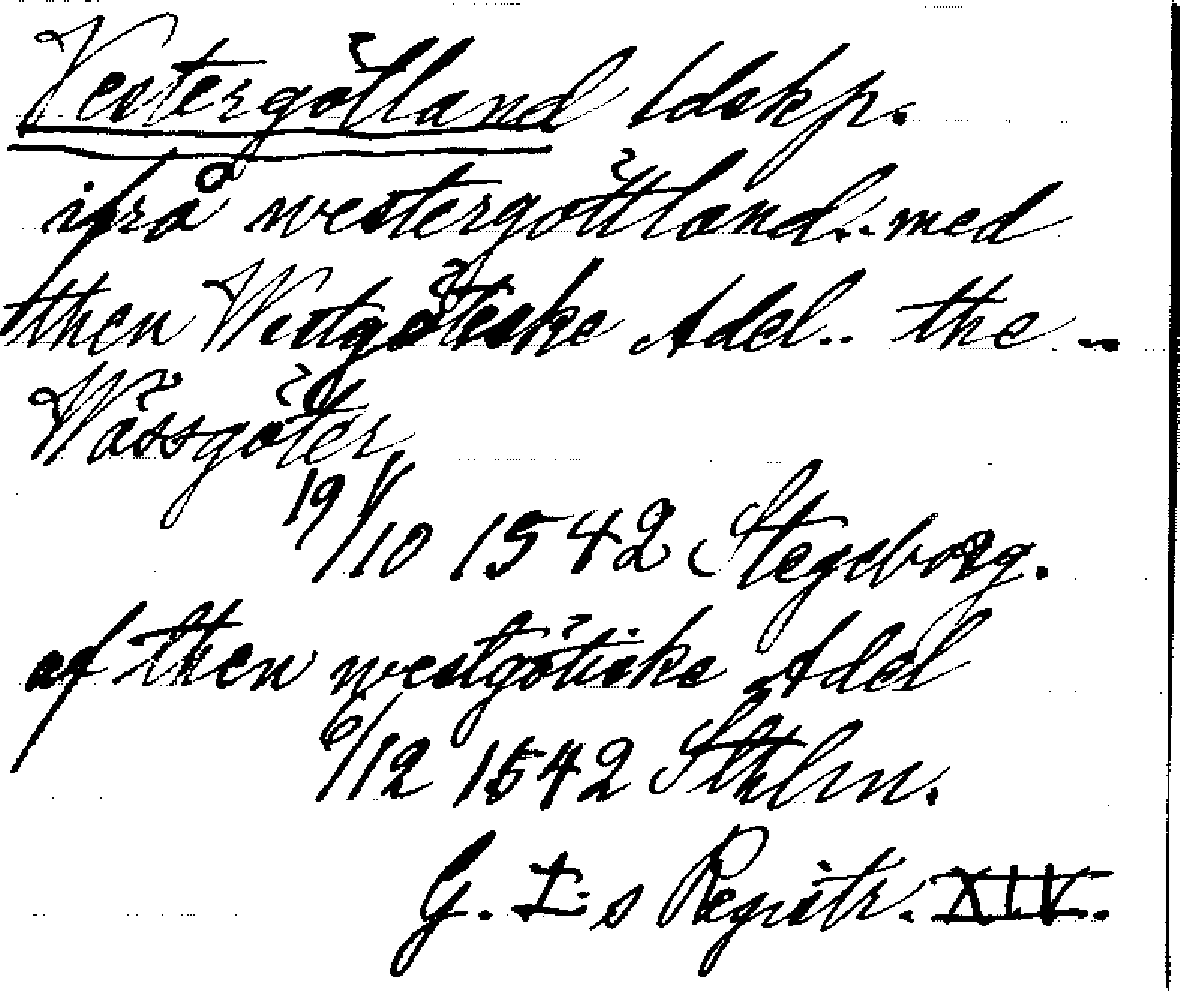 Vestergötland ldskp.
ifrå westergöttland.. med
then Westgöteske Adel.. the ..
Wässgöter
19/10 1542 Stegeborg.
af then westgötiske Adel
6/12 1542 Sthlm.
G. I:s Registr. XIV.